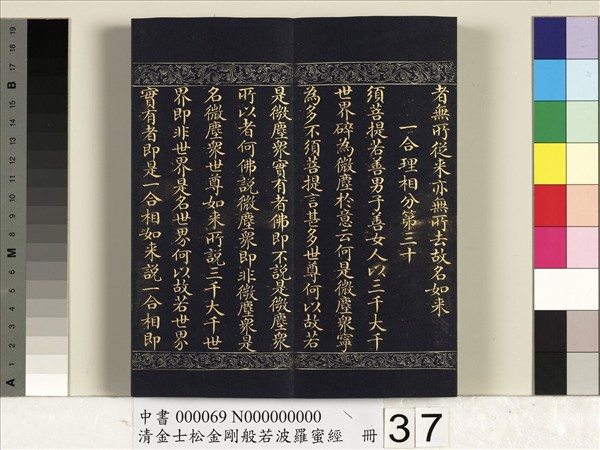 者無所從来亦無所去故名如来
一合理相分第三十
須菩提若善男子善女人以三千大千
世界碎為微塵於意云何是微塵衆寧
為多不須菩提言甚多世尊何以故若
是微塵衆實有者佛即不說是微塵衆
所以者何佛說微塵衆即非微塵衆是
名微塵衆世尊如来所說三千大千世
界即非世界是名世界何以故若世界
實有者即是一合相如来說一合相即
中書 000069 N000000000
清金士松金剛般若波羅蜜經 冊 37
A 1 2 3 4 5 6 M 8 9 10 11 12 13 14 15 B 17 18 19